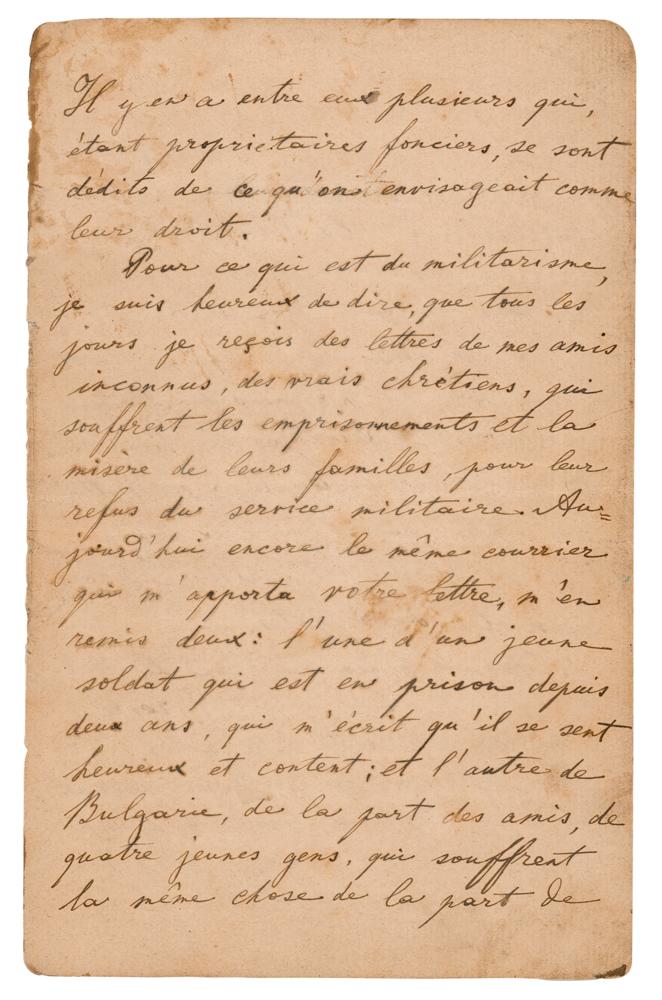 Il y en a entre eux plusieurs qui,
étant propriétaires fonciers, se sont
dédits de ce qu'on envisageait comme
leur droit.
Pour ce qui est du militarisme,
je suis heureux de dire, que tous les
jours je reçois des lettres de mes amis
inconnus, des vrais chrétiens, qui
souffrent les emprisonnements et la
misère de leurs familles, pour leur
refus du service militaire. Au=
jourd'hui encore le même courrier
qui m'apporta votre lettre, m'en
remis deux: l'une d'un jeune
soldat qui est en prison depuis
deux ans, qui m'écrit qu'il se sent
heureux et content; et l'autre de
Bulgarie, de la part des amis, de
quatre jeunes gens, qui souffrent
la même chose de la part de